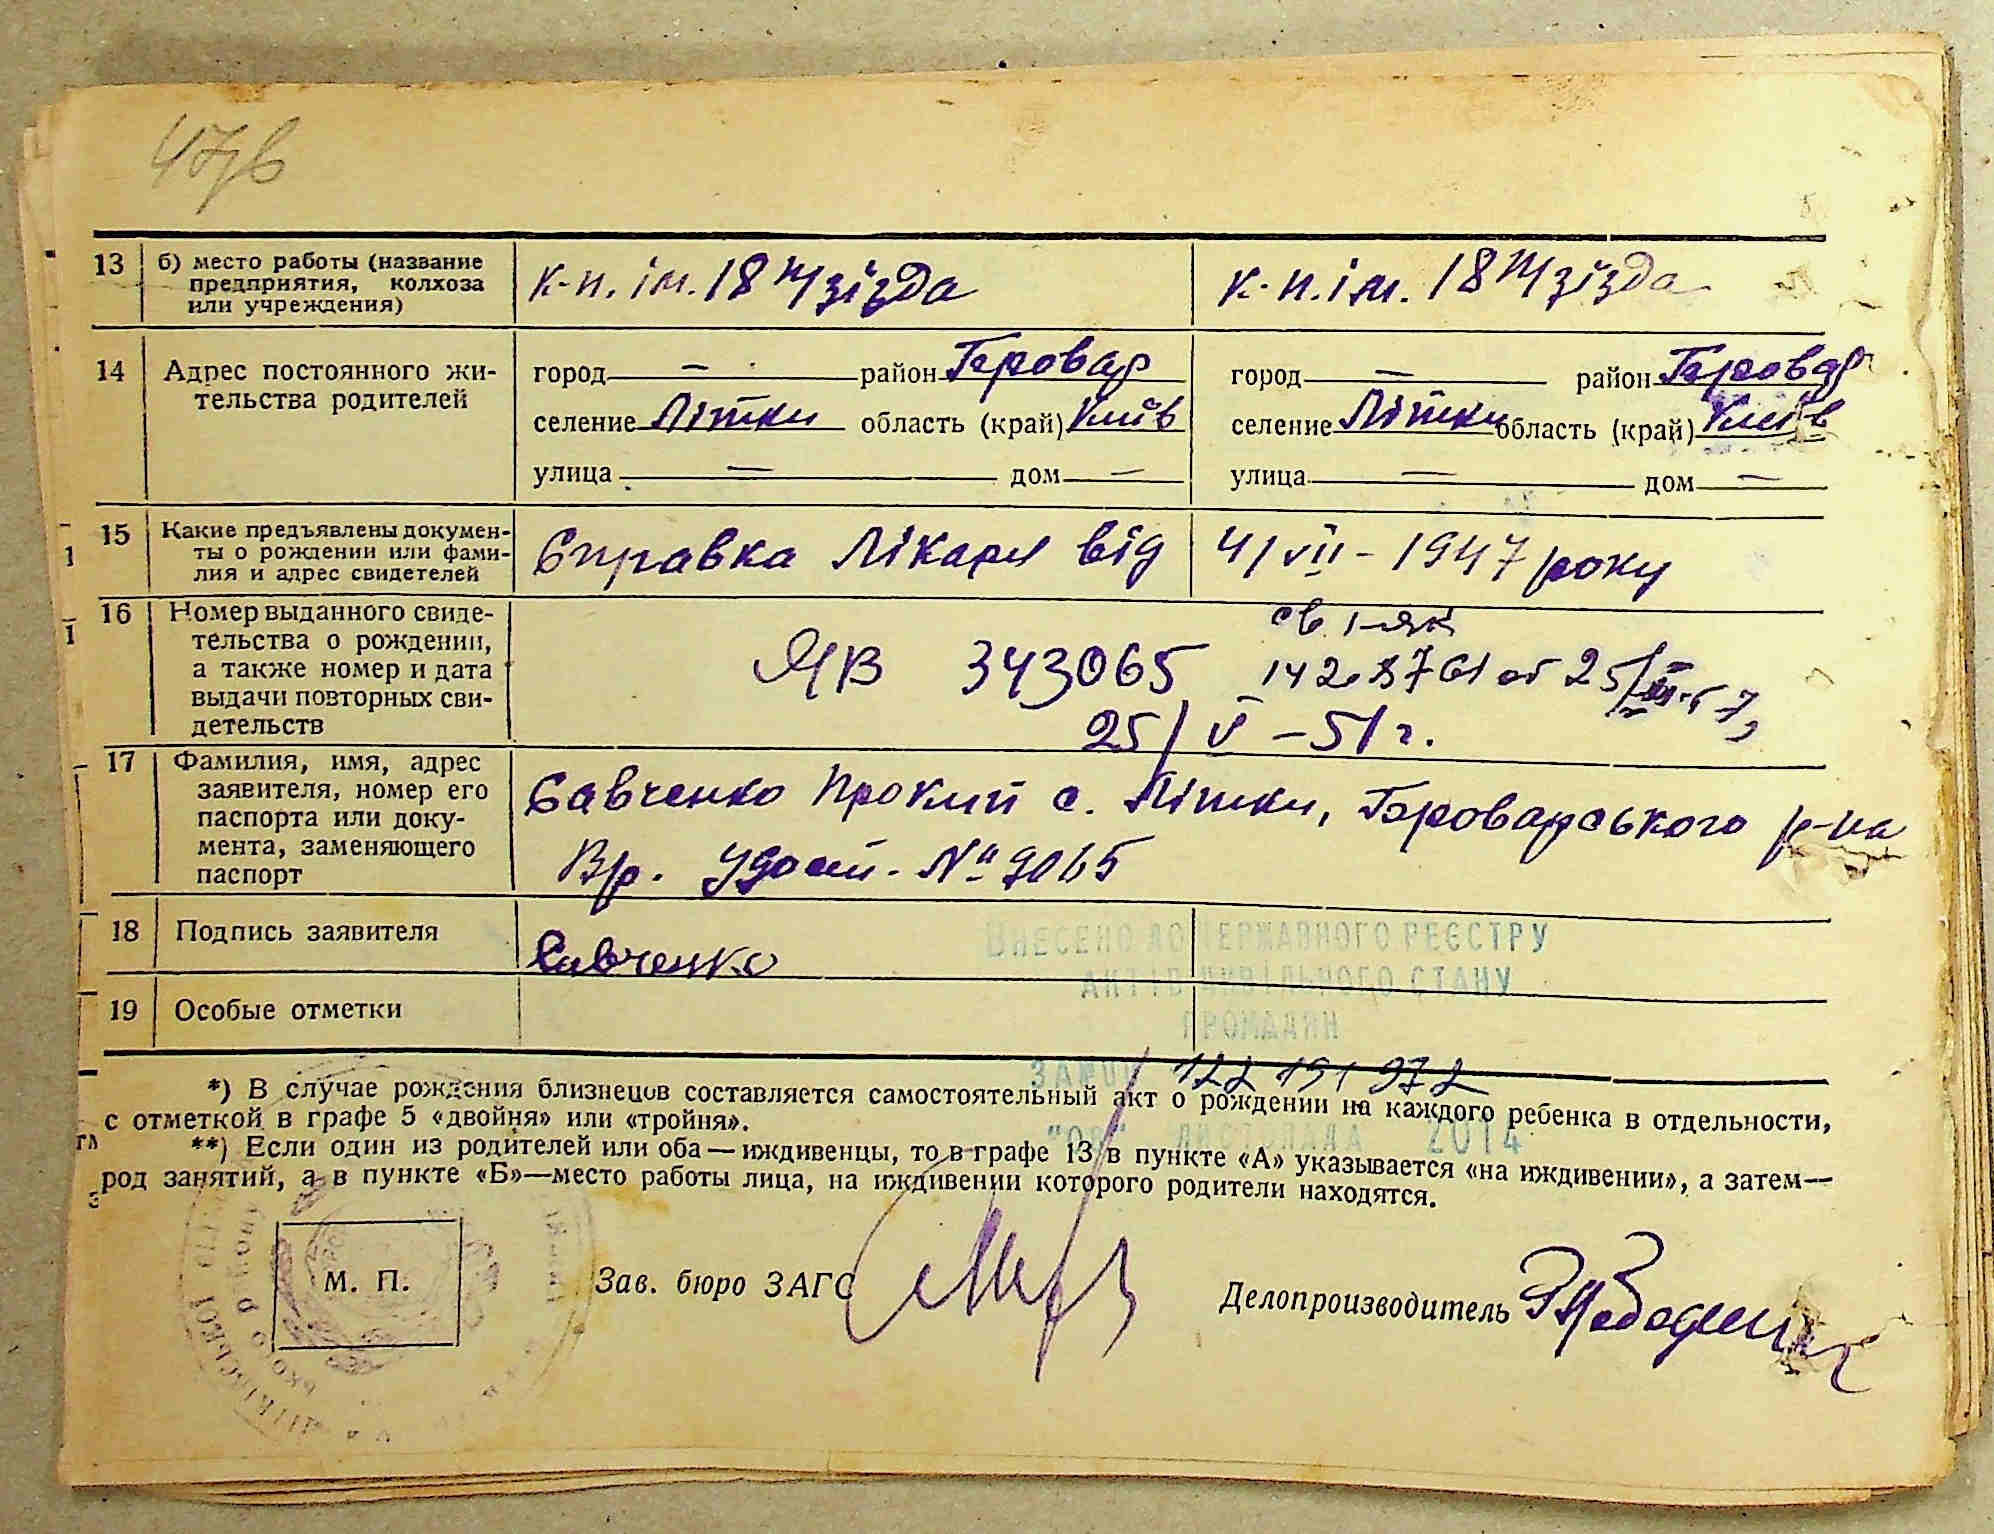 47в
13 б) место работы (название предприятия, колхоза или учреждения) к-п. ім. 18 п/зїзда к-п. ім. 18 п/зїзда
14 Адрес постоянного жи-
тельства родителей
город — район Бровар город — район Бровар
селение Літки область (край) Київ селение Літки область (край) Київ
улица — дом — улица — дом —
15 Какие предъявлены докумен-
ты о рождении или фами-
лия и адрес свидетелей
Справка Лікаря від 4/VII - 1947 року
16 Номер выданного свиде-
тельства о рождении,
а также номер и дата
выдачи повторных сви-
детельств
св. 1-
ЯВ 343065 от 25/
25/V - 51 г.
17 Фамилия, имя, адрес
заявителя, номер его
паспорта или доку-
мента, заменяющего
паспорт
Савченко Прокип с. Літки, Броварського р-на
Вр. Удост. № 9065
18 Подпись заявителя Савченко
19 Особые отметки
ВНЕСЕНО ДО ДЕРЖАВНОГО РЕЄСТРУ
АКТІВ ЦИВІЛЬНОГО СТАНУ
ГРОМАДЯН
122 151 972
ЛИСТОПАДА 2014
*) В случае рождения близнецов составляется самостоятельный акт о рождении на каждого ребенка в отдельности,
с отметкой в графе 5 «двойня» или «тройня».
**) Если один из родителей или оба — иждивенцы, то в графе 13 в пункте «А» указывается «на иждивении», а затем—
род занятий, а в пункте «Б»—место работы лица, на иждивении которого родители находятся.
М. П.
Зав. бюро ЗАГС
Делопроизводитель